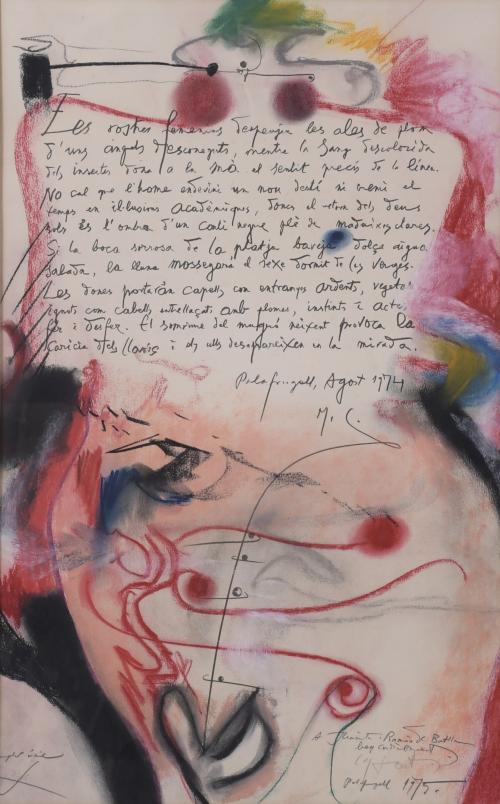 Les vostres femenins despenja les ales de plom
d'uns angels desconeguts, mentre la Sang descolorida
dels insectes dona a la mà el sentit precís de la línea.
No cal que l'home endevini un nou destí ni menti el
temps en il·lusions acadèmiques, doncs el retorn dels deus
sols és l'ombra d'un camí negre plè de maduixes clares.
Si la boca sorrosa de la platja baveja dolça aigua
Salada, la lluna mossegarà el sexe dormit de les Verges.
Les dones portaràn capells con entranyes ardents, vegetals
ignots com cabells entrellaçats amb plomes, instints i actes
fer i desfer. El somriure del maniquí neixent provoca la
caricia dels llavis i els ulls desapareixen en la mirada.
Palafrugell, Agost 1974
M. C.
A i Ramón de Batlle
Palafrugell 1975.